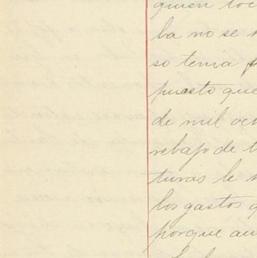 quien toc
ba no se
so tenia
puesto que
de mil oc
rebajo de t
turas le
los gastos q
porque au